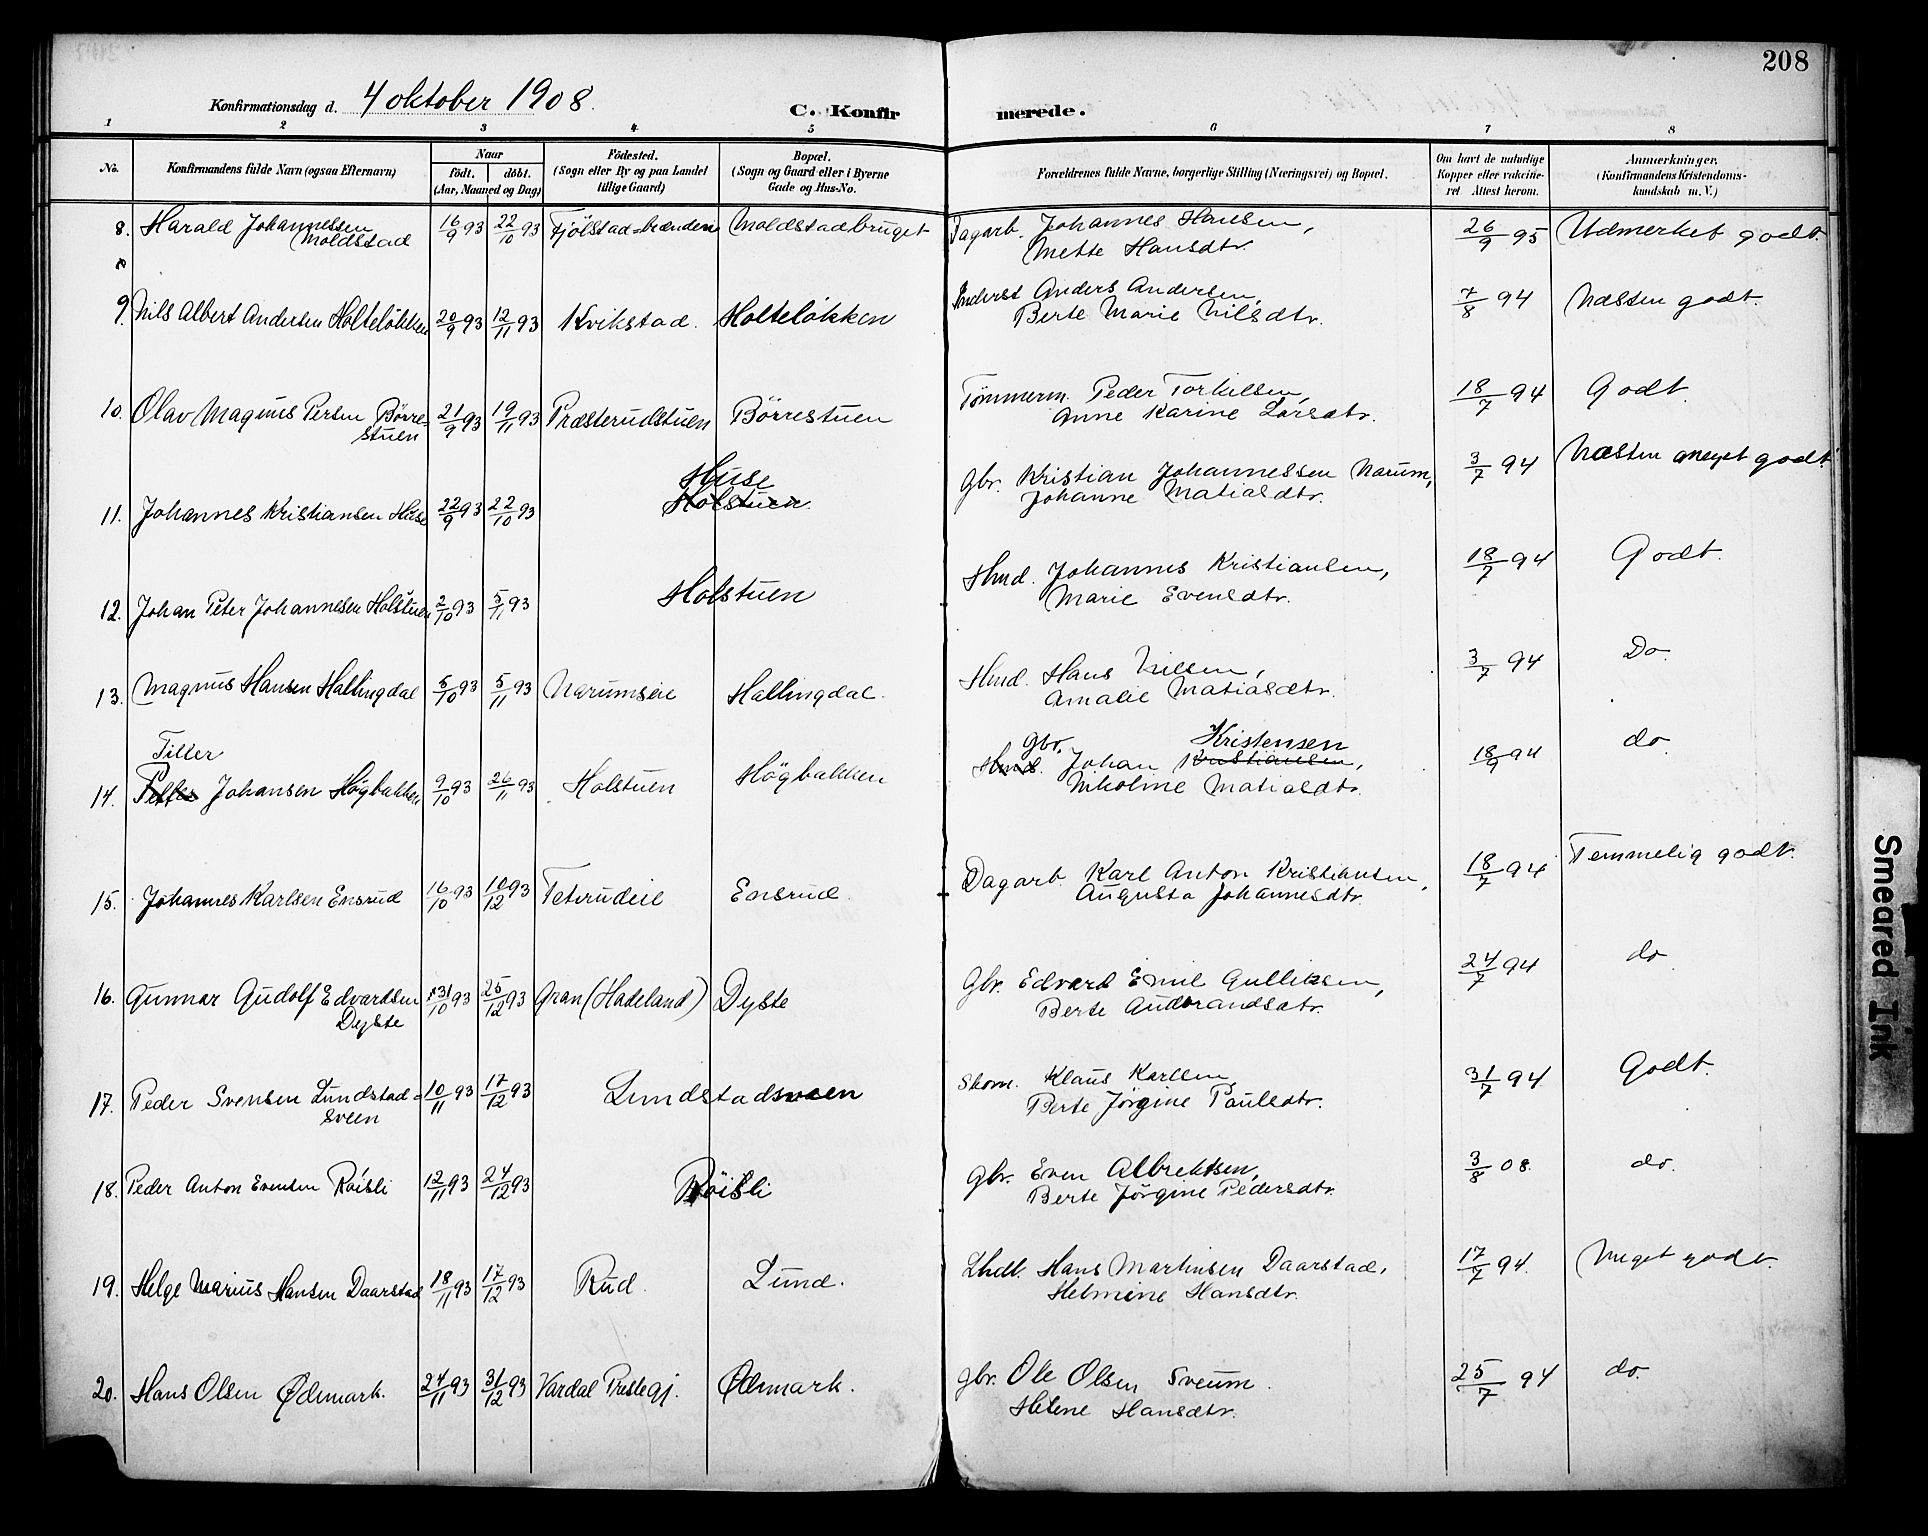 208
Konfirmationsdag d. 4 oktober 1908.
C. Konfirmerede.
1 2 3 4 5 6 7 8
No. Konfirmandens fulde Navn (ogsaa Efternavn) Naar født. døbt. (Aar, Maaned og Dag) Fødested. (Sogn eller By og paa Landet tillige Gaard) Bopæl. (Sogn og Gaard eller i Byerne Gade og Hus-No. Forældrenes fulde Navne, borgerlige Stilling (Næringsvei) og Bopæl. Om havt de naturlige Kopper eller vaccineret Attest herom. Anmerkninger. (Konfirmandens Kristendomskundskab m. V.)
8. Harald Johannessen Moldstad 16/9 93 22/10 93 Fjölstad=brænden Moldstadbruget Dagarb. Johannes Hansen, Mette Hansdtr. 26/9 95 Udmerket godt.
9. Nils Albert Andersen Holteløkken 20/9 93 12/11 93 Kvikstad. Holteløkken Inderst Anders Andersen, Berte Marie Nilsdtr. 7/8 94 Næsten godt.
10. Olav Magnus Persen Börrestuen 21/9 93 19/11 93 Præsterudstuen Börrestuen Tømmerm. Peder Torkilsen, Anne Karine Larsdtr. 18/7 94 Godt.
11. Johannes Kristiansen Huse 22/9 93 22/10 93 Huse Holstuen. Gbr. Kristian Johannessen Narum, Johanne Matiasdtr. 3/7 94 Næsten meget godt.
12. Johan Peter Johannesen Holstuen 2/10 93 5/11 93 Holstuen Hmd. Johannes Kristiansen, Marie Evensdtr. 18/7 94 Godt.
13. Magnus Hansen Hallingdal 5/10 93 5/11 93 Narumseie Hallingdal. Hmd. Hans Nilsen, Amalie Matiasdtr. 3/7 94 Do.
14. Tiller Johansen Högbakken 9/10 93 26/11 93 Holstuen Högbakken Gbr. Hmd. Johan Kristensen Kristiansen, Nikoline Matiasdtr. 18/9 94 do
15. Johannes Karlsen Ensrud 16/10 93 10/12 93 Teterudeie Ensrud. Dagarb. Karl Anton Kristiansen, Augusta Johannesdtr. 18/7 94 Temmelig godt.
16. Gunnar Gudolf Edvardsen Dyste 31/10 93 25/12 93 Gran (Hadeland) Dyste Gbr. Edvard Emil Gulliksen, Berte Gudbrandsdtr. 24/7 94 do
17. Peder Svensen Lundstadsveen 10/11 93 17/12 93 Lundstadsveen Skom. Klaus Karlsen Berte Jørgine Paulsdtr. 31/7 94 Godt.
18. Peder Anton Evensen Röisli 12/11 93 24/12 93 Röisli Gbr. Even Albrektsen, Berte Jørgine Pedersdtr. 3/8 08. do.
19. Helge Marius Hansen Daarstad 18/11 93 17/12 93 Rud. Lund. Hans Martinsen Daarstad, Helmine Hansdtr. 17/7 94. Meget godt.
20. Hans Olsen Ødemark. 24/11 93 31/12 93 Vardal Prestegj. Ødemark. Gbr. Ole Olsen Sveum. Helene Hansdtr. 25/7 94 do.
Smeared Ink